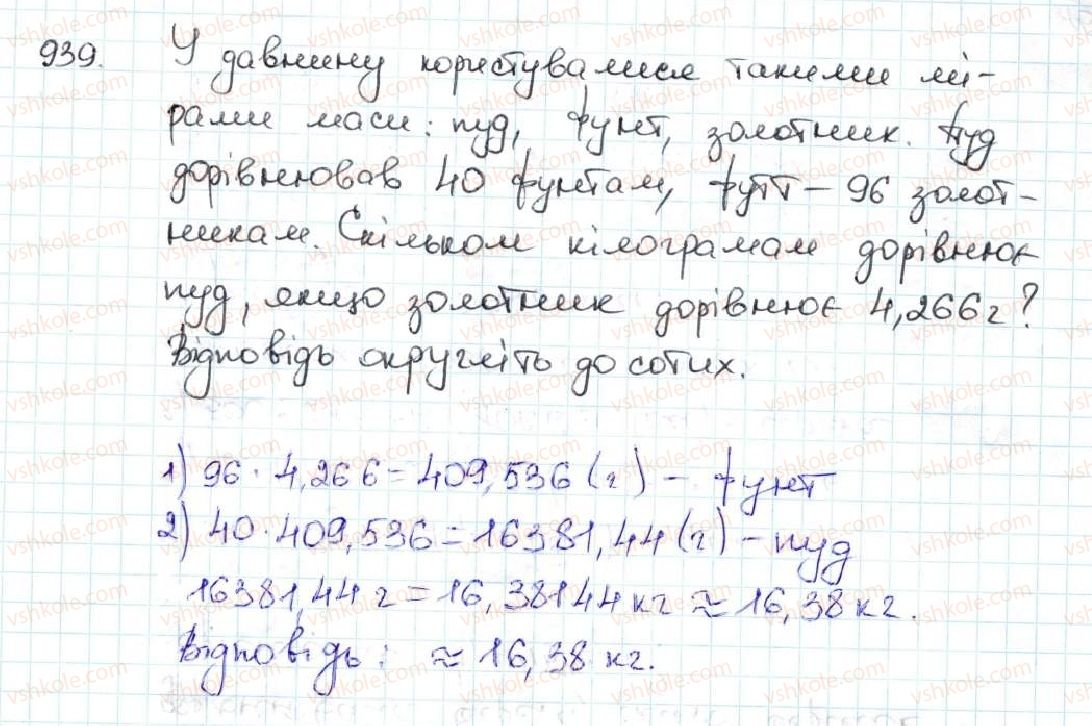 939. У давнину користувалися такими мі-
рами маси: пуд, фунт, золотник. Пуд
дорівнював 40 фунтам, футт – 96 золот-
никам. Скільком кілограмам дорівнює
пуд, якщо золотник дорівнює 4,266 г?
Відповідь округліть до сотих.
1) 96 · 4,266 = 409,536 (г) – фунт
2) 40 · 409,536 = 16381,44 (г) – пуд
16381,44 г = 16,38144 кг ≈ 16,38 кг.
Відповідь: ≈ 16,38 кг.